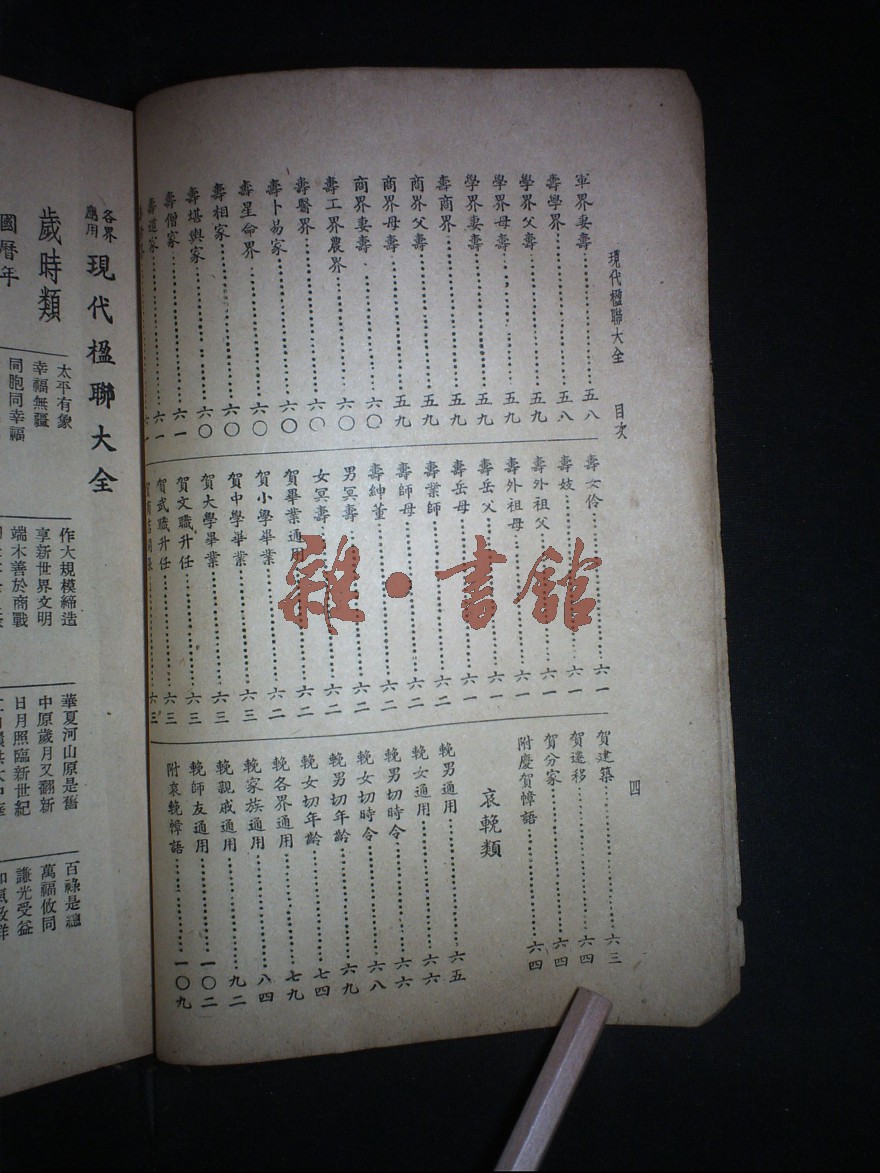 現代楹聯大全 目次 四
軍界妻壽……五八
壽學界……五八
學界父壽……五九
學界母壽……五九
學界妻壽……五九
壽商界……五九
商界父壽……五九
商界母壽……五九
商界妻壽……六〇
壽工界農界……六〇
壽醫界……六〇
壽卜易家……六〇
壽星命界……六〇
壽相家……六〇
壽堪輿家……六〇
壽僧家……六一
壽道家……六一
壽女伶……六一
壽妓……六一
壽外祖父……六一
壽外祖母……六一
壽岳父……六一
壽岳母……六二
壽業師……六二
壽師母……六二
壽紳董……六二
男冥壽……六二
女冥壽……六二
賀畢業通用……六二
賀小學畢業……六二
賀中學畢業……六三
賀大學畢業……六三
賀文職升任……六三
賀武職升任……六三
賀建築……六三
賀遷移……六四
賀分家……六四
附慶賀幛語……六四
哀輓類
輓男通用……六五
輓女通用……六六
輓男切時令……六六
輓女切時令……六八
輓男切年齡……六九
輓女切年齡……七四
輓各界通用……七九
輓家族通用……八四
輓親戚通用……九二
輓師友通用……一〇二
附哀輓幛語……一〇九
各界應用 現代楹聯大全
歲時類
國曆年
太平有象
幸福無疆
同胞同幸福
作大規模締造
享新世界文明
端木善於商戰
華夏河山原是舊
中原歲月又翻新
日月照臨新世紀
百祿是總
萬福攸同
謙光受益
雜·書館